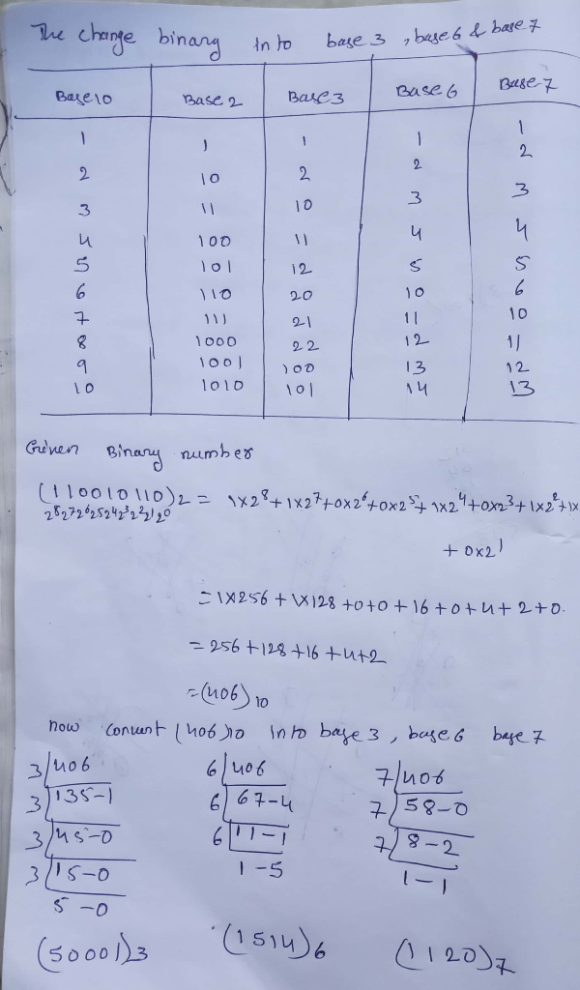 The change binary Into base 3, base 6 & base 7
Base 10 Base 2 Base 3 Base 6 Base 7
1 1 1 1 1
2 10 2 2 2
3 11 10 3 3
4 100 11 4 4
5 101 12 5 5
6 110 20 10 6
7 111 21 11 10
8 1000 22 12 11
9 1001 100 13 12
10 1010 101 14 13
Given Binary number
(110010110)2 = 1x2^8+1x2^7+0x2^6+0x2^5+1x2^4+0x2^3+1x2^2+1x
2^8 2^7 2^6 2^5 2^4 2^3 2^2 2^1 2^0
+ 0x2^1
= 1x256 + 1x128 +0+0+16+0+4+2+0.
= 256+128+16+4+2
= (406)10
now convert (406)10 into base 3, base 6 base 7
3 406 6 406 7 406
3 135-1 6 67-4 7 58-0
3 45-0 6 11-1 7 8-2
3 15-0 1-5 1-1
5-0
(50001)3 (1514)6 (1120)7